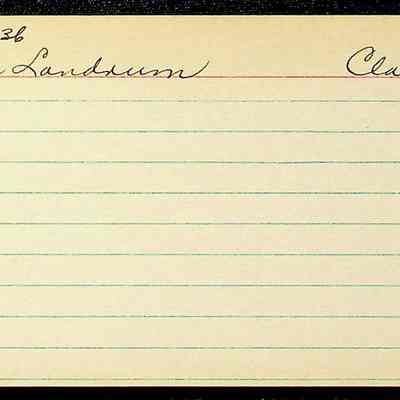 36
Landrum Cla